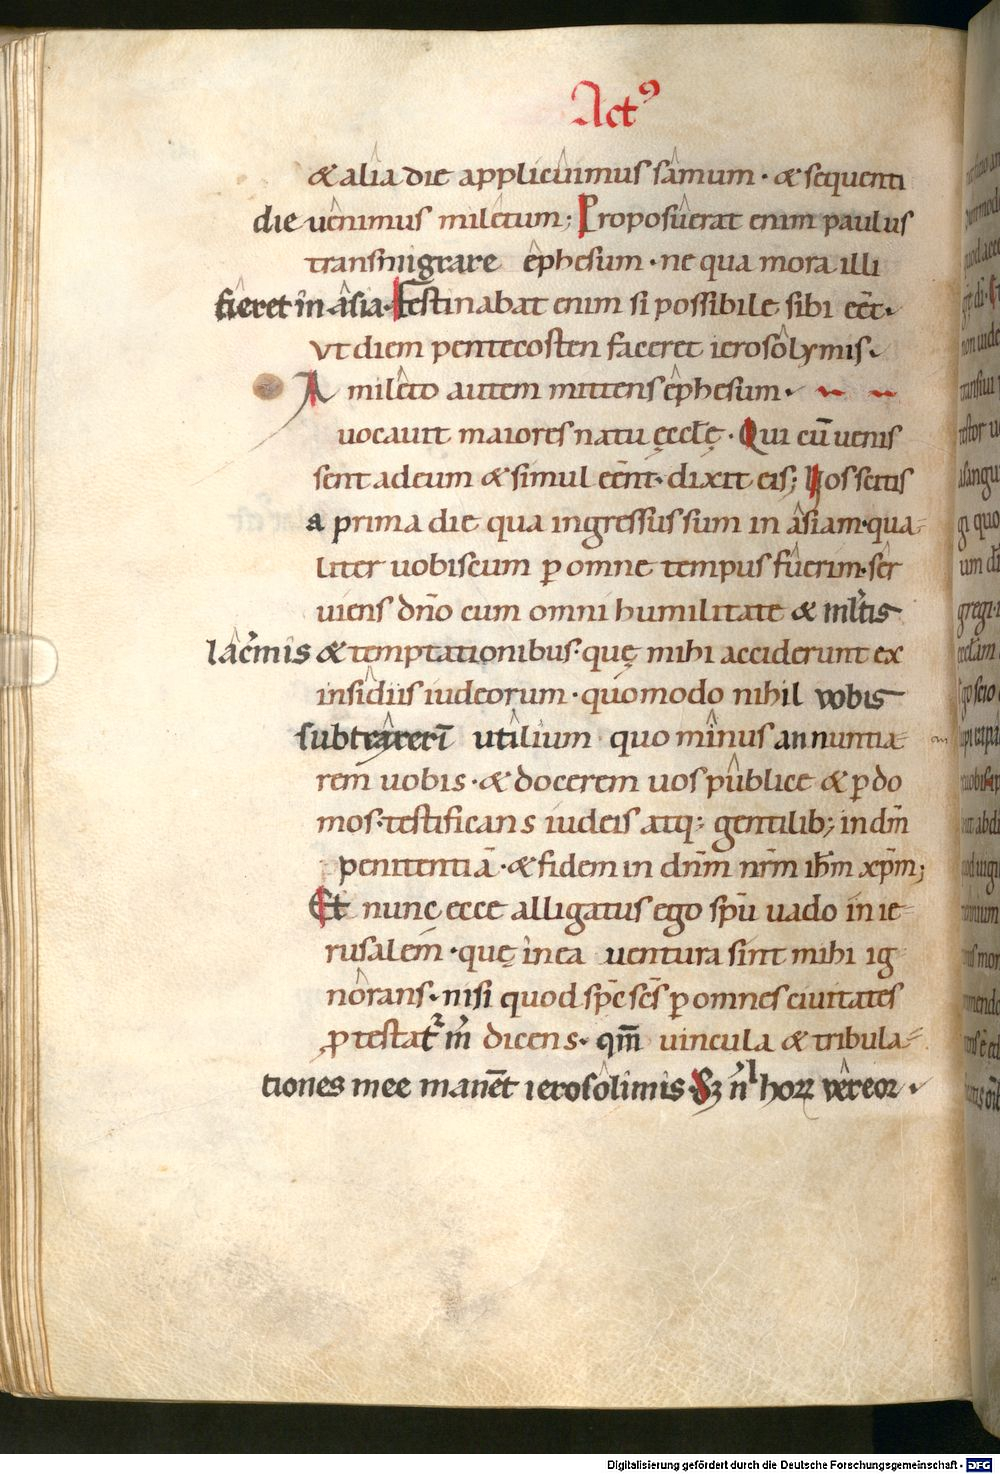 Actꝰ
& alia die applicuimus samum · & sequenti
die uenimus miletum; Proposuerat enim paulus
transmigrare ephesum · ne qua mora illi
fieret in asia · Festinabat enim si possibile sibi eēt ·
vt diem pentecosten faceret ierosolymis ·
A mileto autem mittens ephesum ·
uocauit maiores natu ęccl̄ę · Qui cū uenis
sent ad eum & simul eēnt · dixit eis; Vos scitis
a prima die qua ingressus sum in asiam · qua⸗
liter uobiscum ꝑ omne tempus fuerim · ser
uiens dn̄o cum omni humilitate &
lac̄mis & temptationibus · quę mihi acciderunt ex
insidiis iudeorum · quomodo nihil vobis
utilium · quo minus annuntia
rem uobis · & docerem uos publice & ꝑ do
mos · testificans iudeis atq; gentilib; in dm̄
penitentiā · & fidem in dn̄m nr̄m ih̄m xp̄m;
Et nunc ecce alligatus ego sp̄u uado in ie
rusalem · quę in ea uentura sint mihi ig
norans · nisi quod sp̄c sc̄s ꝑ omnes ciuitates
dicens · qm̄ uincula & tribula⸗
tiones mee manēt ierosolimis · Sꝫ horꝝ vereor ·
Digitalisierung gefördert durch die Deutsche Forschungsgemeinschaft - DFG